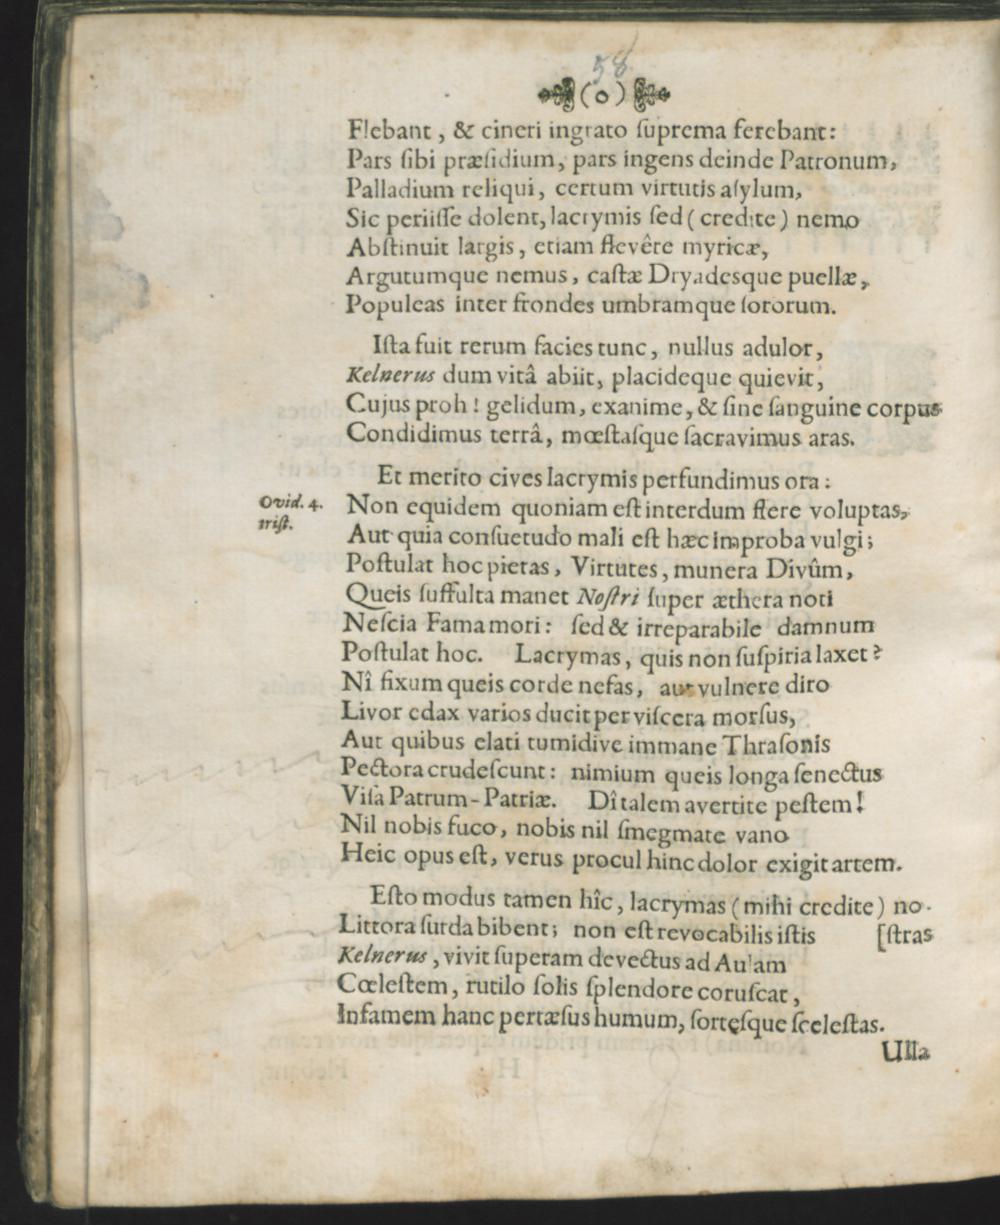 58
(o)
Flebant, & cineri ingrato ſuprema ferebant:
Pars ſibi præſidium, pars ingens deinde Patronum,
Palladium reliqui, certum virtutis aſylum,
Sic periiſſe dolent, lacrymis ſed (credite) nemo
Abſtinuit largis, etiam flevêre myricæ,
Argutumque nemus, caſtæ Dryadesque puellæ,
Populeas inter frondes umbramque ſororum.
Iſta fuit rerum facies tunc, nullus adulor,
Kelnerus dum vitâ abiit, placideque quievit,
Cujus proh! gelidum, exanime, & ſine ſanguine corpus
Condidimus terrâ, mœſtaſque ſacravimus aras.
Et merito cives lacrymis perfundimus ora:
Ovid. 4.
triſt.
Non equidem quoniam eſt interdum flere voluptas,
Aut quia conſuetudo mali eſt hæc improba vulgi;
Poſtulat hoc pietas, Virtutes, munera Divûm,
Queis ſuffulta manet Noſtri ſuper æthera noti
Neſcia Fama mori: ſed & irreparabile damnum
Poſtulat hoc. Lacrymas, quis non ſuſpiria laxet?
Nî fixum queis corde nefas, aut vulnere diro
Livor edax varios ducit per viſcera morſus,
Aut quibus elati tumidive immane Thraſonis
Pectora crudeſcunt: nimium queis longa ſenectus
Viſa Patrum-Patriæ. Dî talem avertite peſtem!
Nil nobis fuco, nobis nil ſmegmate vano
Heic opus eſt, verus procul hinc dolor exigit artem.
Eſto modus tamen hîc, lacrymas (mihi credite) no-
Littora ſurda bibent; non eſt revocabilis iſtis [ſtras
Kelnerus, vivit ſuperam devectus ad Aulam
Cœleſtem, rutilo ſolis ſplendore coruſcat,
Infamem hanc pertæſus humum, ſortęſque ſceleſtas.
Ulla